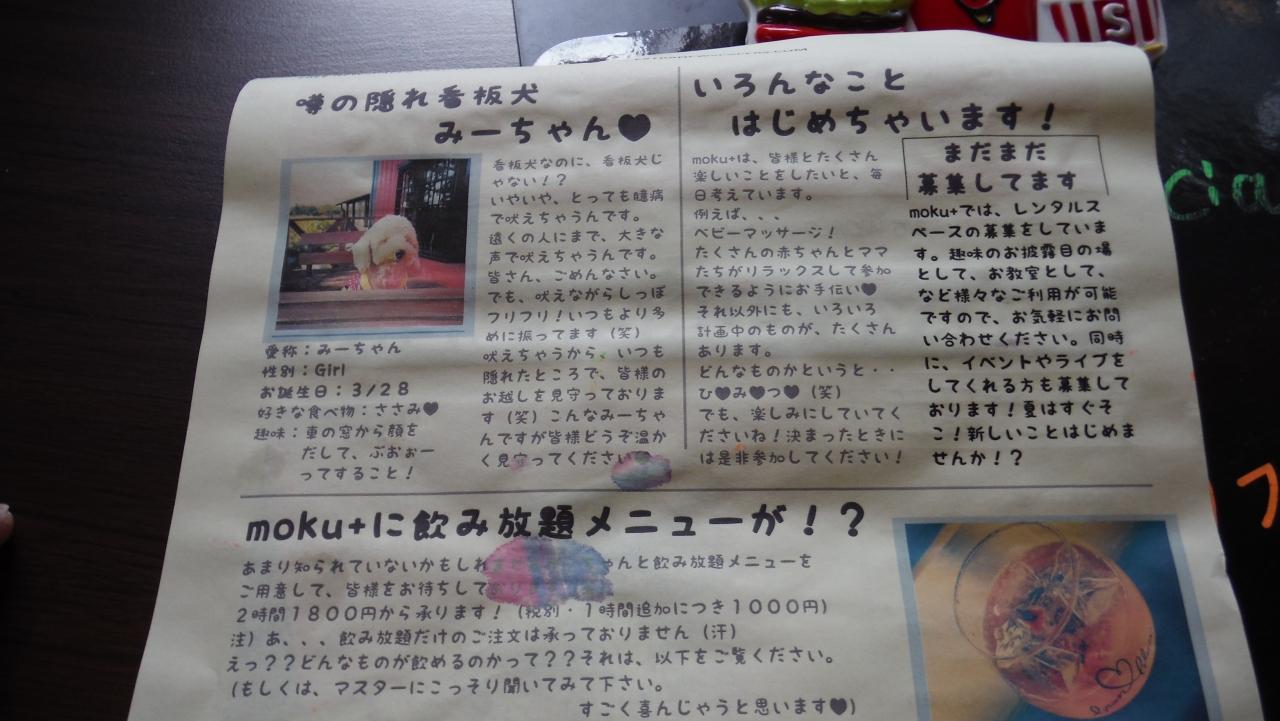 噂の隠れ看板犬
みーちゃん♥
看板犬なのに、看板犬じ
ゃない！？
いやいや、とっても臆病
で吠えちゃうんです。
遠くの人にまで、大きな
声で吠えちゃうんです。
皆さん、ごめんなさい。
でも、吠えながらしっぽ
フリフリ！いつもより多
めに振ってます（笑）
吠えちゃうから、いつも
隠れたところで、皆様の
お越しを見守っておりま
す（笑）こんなみーちゃ
んですが皆様どうぞ温か
く見守ってください
愛称：みーちゃん
性別：Girl
お誕生日：3/28
好きな食べ物：ささみ♥
趣味：車の窓から顔を
だして、ぶおぉー
ってすること！
いろんなこと
はじめちゃいます！
moku+は、皆様とたくさん
楽しいことをしたいと、毎
日考えています。
例えば、、、
ベビーマッサージ！
たくさんの赤ちゃんとママ
たちがリラックスして参加
できるようにお手伝い♥
それ以外にも、いろいろ
計画中のものが、たくさん
あります。
どんなものかというと・・
ひ♥み♥つ♥（笑）
でも、楽しみにしていてく
ださいね！決まったときに
は是非参加してください！
まだまだ
募集してます
moku+では、レンタルス
ペースの募集をしていま
す。趣味のお披露目の場
として、お教室として、
など様々なご利用が可能
ですので、お気軽にお問
い合わせください。同時
に、イベントやライブを
してくれる方も募集して
おります！夏はすぐそ
こ！新しいことはじめま
せんか！？
moku+に飲み放題メニューが！？
あまり知られていないかもしれ ゃんと飲み放題メニューを
ご用意して、皆様をお待ちして
2時間1800円から承ります！（税別・1時間追加につき1000円）
注）あ、、、飲み放題だけのご注文は承っておりません（汗）
えっ？？どんなものが飲めるのかって？？それは、以下をご覧ください。
（もしくは、マスターにこっそり聞いてみて下さい。
すごく喜んじゃうと思います♥）
S